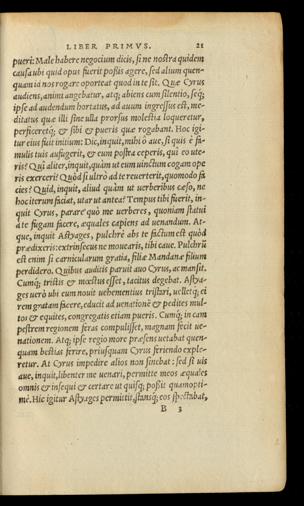 LIBER PRIMVS. 21
pueri: Male habere negocium dicis, si ne nostra quidem
causa ubi quid opus fuerit possis agere, sed alium quen-
quam id nos rogare oporteat quod in te sit. Quæ Cyrus
audiens, animi angebatur, atq; abiens cum silentio, seq;
ipse ad audendum hortatus, ad auum ingressus est, me-
ditatus quæ illi sine ulla prorsus molestia loqueretur,
perficeretq; & sibi & pueris quæ rogabant. Hoc igi-
tur eius fuit initium: Dic, inquit, mihi ô aue, si quis è fa-
mulis tuis aufugerit, & eum postea ceperis, qui eo ute-
ris? Quî aliter, inquit, quàm ut eum uinctum cogam ope
ris exerceri? Quòd si ultrò ad te reuerterit, quomodo fa
cies? Quid, inquit, aliud quàm ut uerberibus cæso, ne
hoc iterum faciat, utar ut antea? Tempus tibi fuerit, in-
quit Cyrus, parare quò me uerberes, quoniam statui
à te fugam facere, æquales capiens ad uenandum. At-
que, inquit Astyages, pulchrè abs te factum est quòd
prædixeris: extrinsecus ne mouearis, tibi caue. Pulchrũ
est enim si carnicularum gratia, filiæ Mandanæ filium
perdidero. Quibus auditis paruit auo Cyrus, ac mansit.
Cumq; tristis & mœstus esset, tacitus degebat. Astya-
ges uerò ubi eum nouit uehementius tristari, uelletq; ei
rem gratam facere, educit ad uenationẽ & pedites mul-
tos & equites, congregatis etiam pueris. Cumq; in cam
pestrem regionem feras compulisset, magnam fecit ue-
nationem. Atq; ipse regio more præsens uetabat quen-
quam bestias ferire, priusquam Cyrus feriendo exple-
retur. At Cyrus impedire alios non sinebat: sed si uis
aue, inquit, libenter me uenari, permitte meos æquales
omnis & insequi & certare ut quisq; possit quamopti-
mè. Hic igitur Astyages permittit, stansq; eos spectabat,
B 3